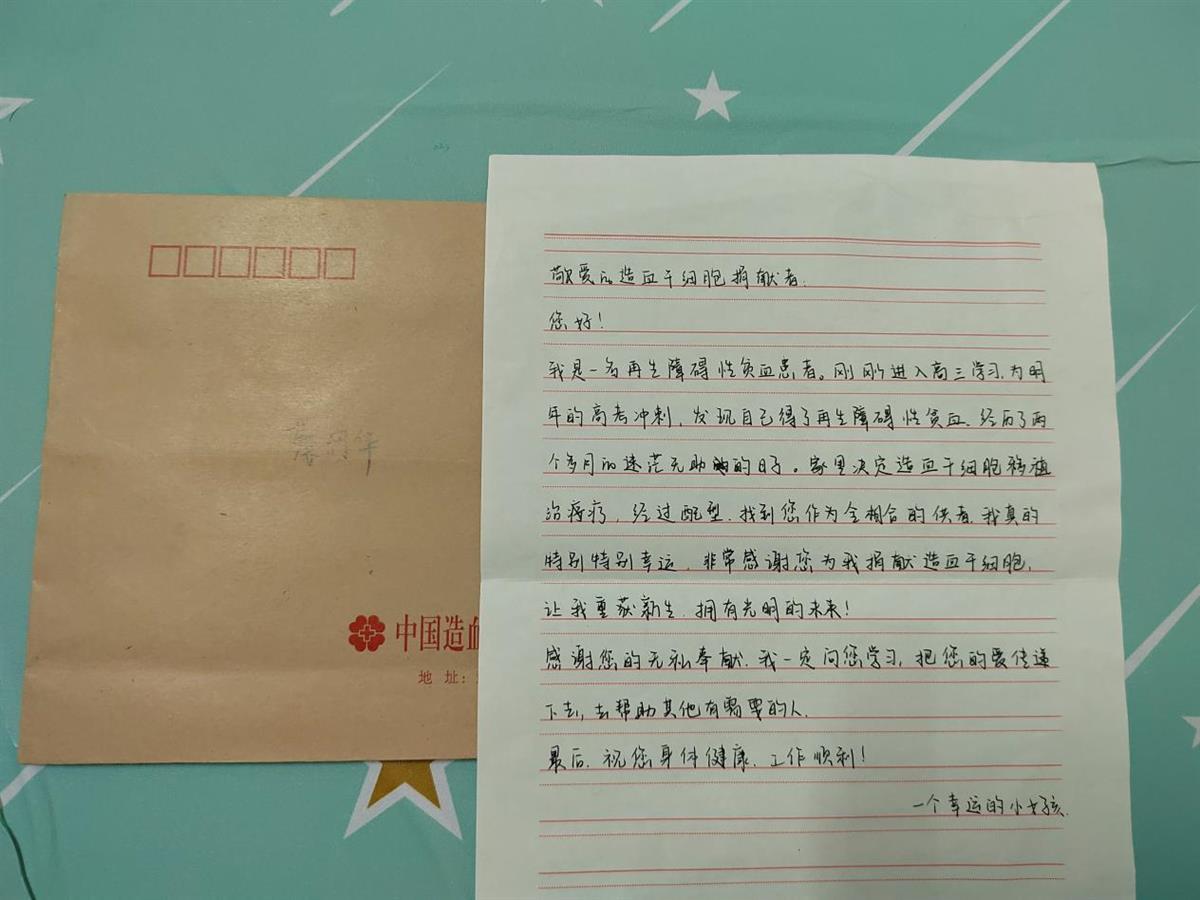 中国造血
地 址:
敬爱的造血干细胞捐献者.
您好!
我是一名再生障碍性贫血患者。刚刚进入高三学习,为明
年的高考冲刺,发现自己得了再生障碍性贫血.经历了两
个多月的迷茫无助的日子。家里决定造血干细胞移植
治疗,经过配型.找到您作为全相合的供者.我真的
特别特别幸运.非常感谢您为我捐献造血干细胞,
让我重获新生.拥有光明的未来!
感谢您的无私奉献.我一定向您学习,把您的爱传递
下去,去帮助其他有需要的人.
最后.祝您身体健康、工作顺利!
一个幸运的小女孩.